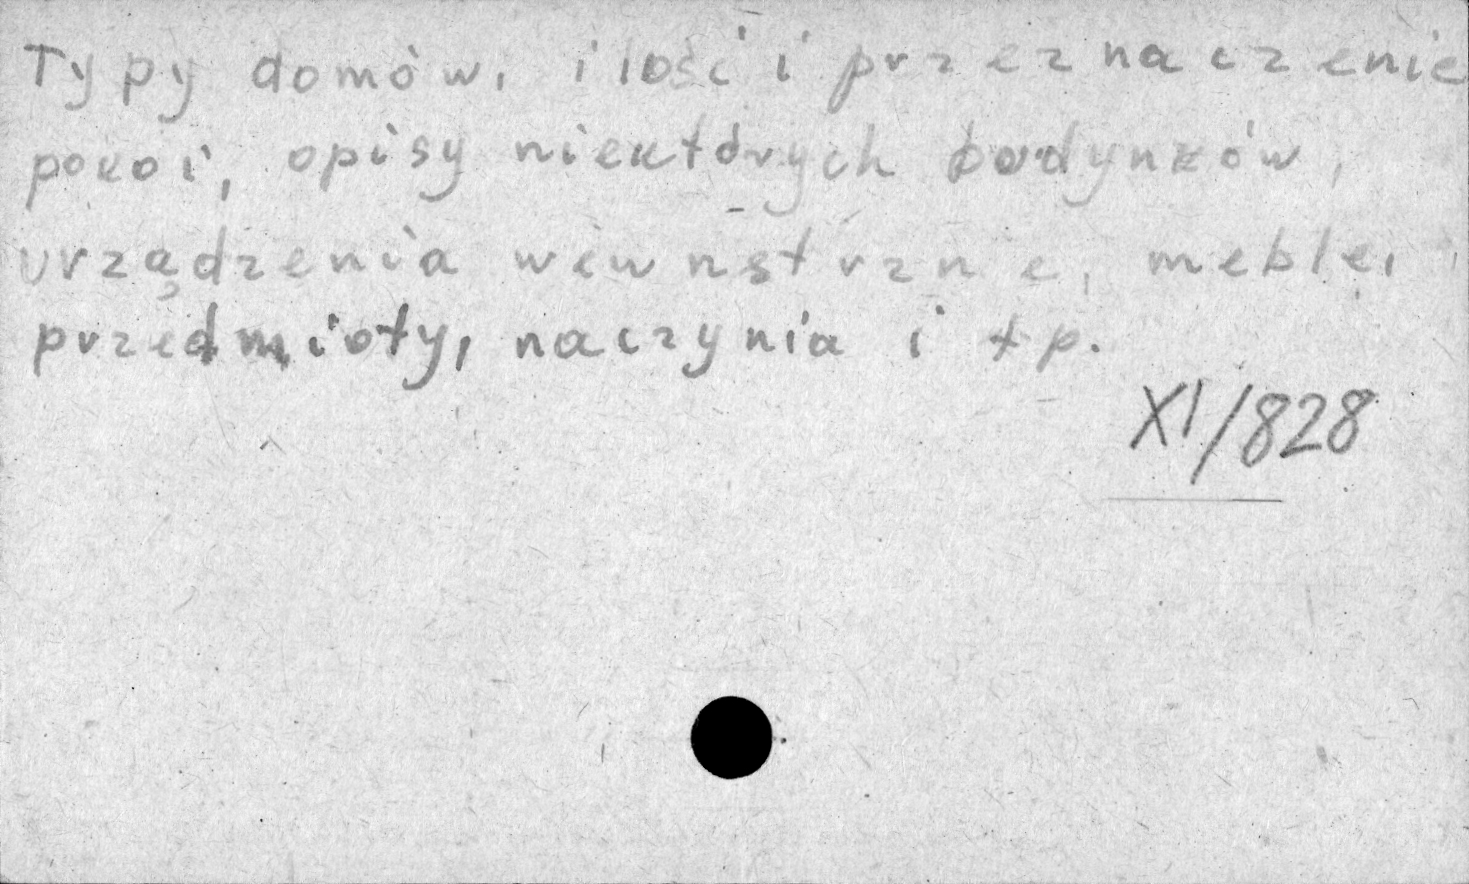 Typy domów, ilość i przeznaczenie
pokoi, opisy niektórych budynków,
urządzenia wewnstrzne, meble,
przedmioty, naczynia i tp.
XI/828